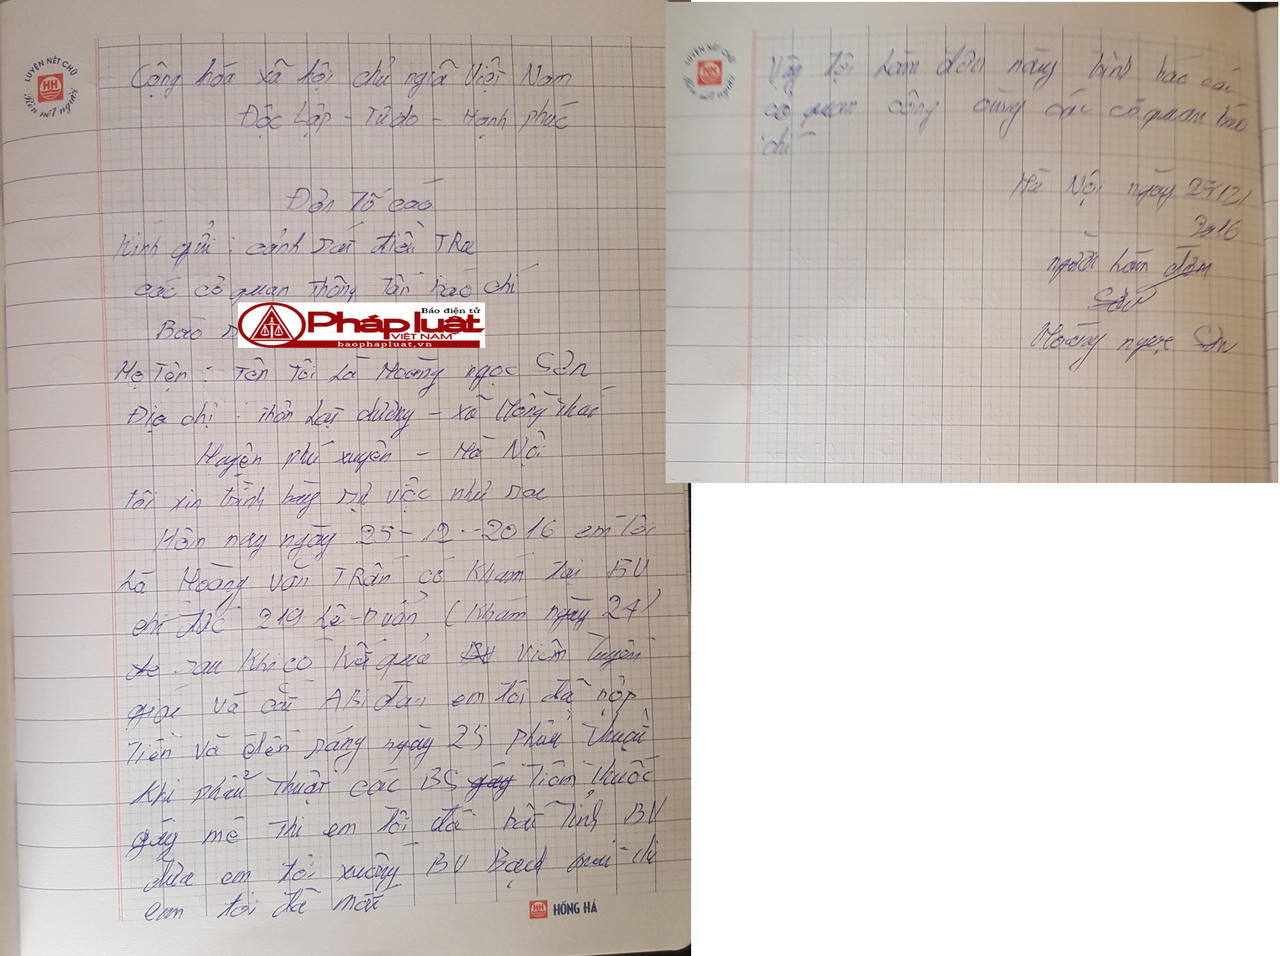 LUYỆN NÉT CHỮ
HH
Rèn nết người
Cộng hóa xã hội chủ nghĩa Việt Nam
Độc Lập - Tự do - Hạnh phúc
Đơn Tố cáo
Kính gửi : cảnh sát điều TRa
các cơ quan thông tấn báo chí
Báo
Báo điện tử
Pháp luật
VIỆT NAM
baophapluat.vn
Họ Tên : Tên Tôi Là Hoàng ngọc Sơn
Địa chỉ : thôn Lạt dương - xã Hồng thái
Huyện phú xuyên - Hà Nội
tôi xin trình bày sự việc như sau
Hôm nay ngày 25-12-2016 em tôi
Là Hoàng văn TRấn có Khám tại BV
trí Đức 219 Lê-Duẩn ( Khám ngày 24)
sau Khi có Kết quả viêm Tuyến
giáp và cắt AMidan em tôi đã nộp
Tiền và đến sáng ngày 25 phẫu thuật
Khi phẫu thuật các BS gây Tiêm thuốc
gây mê thì em tôi đã bất Tỉnh BV
đưa em tôi xuống BV Bạch mai thì
em tôi đã mất
HH HỒNG HÀ
LUYỆN NÉT CHỮ
HH
Rèn nết người
Vậy tôi Làm đơn này trình báo các
cơ quan công cùng các cơ quan báo
chí
Hà Nội ngày 25/12/
2016
người Làm đơn
Sơn
Hoàng ngọc Sơn